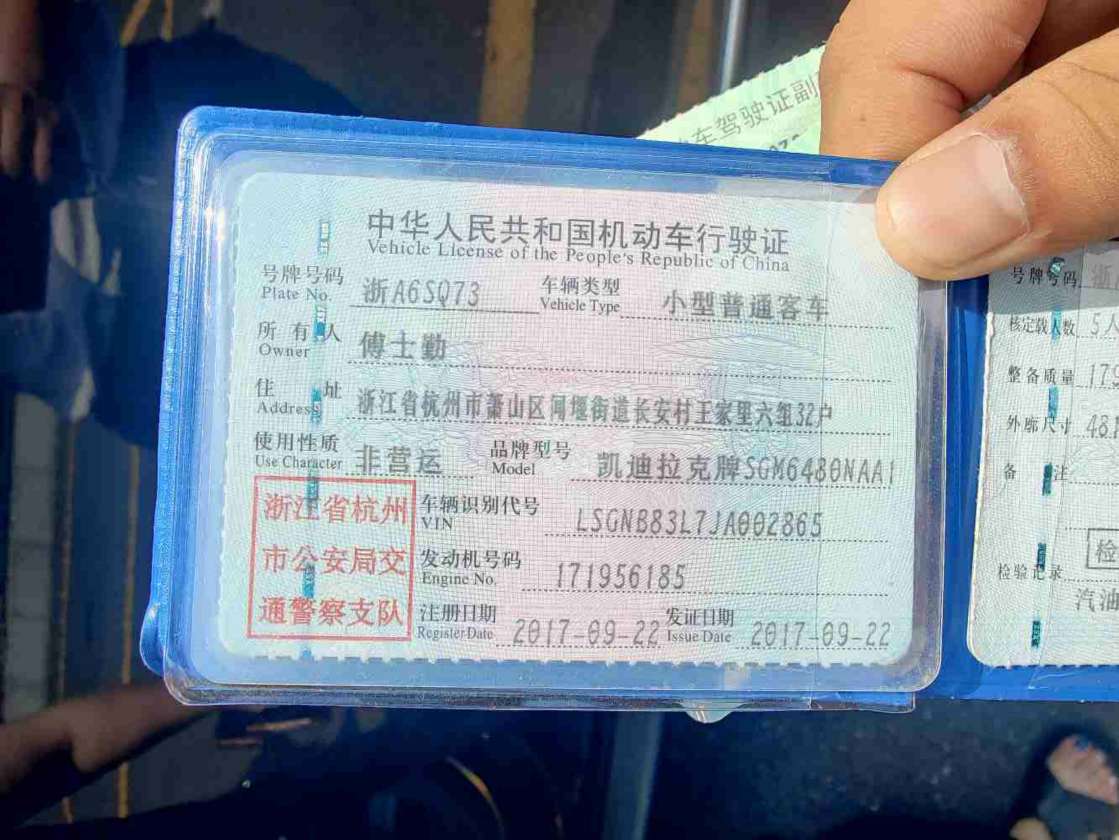 车驾驶证副
中华人民共和国机动车行驶证
Vehicle License of the People's Republic of China
号牌号码 浙A6SQ73 车辆类型 小型普通客车
Plate No. Vehicle Type
所有人 傅士勤
Owner
住址 浙江省杭州市萧山区闻堰街道长安村王家里六组32户
Address
使用性质 非营运 品牌型号 凯迪拉克牌SGM6480NAA1
Use Character Model
浙江省杭州
市公安局交
通警察支队
车辆识别代号 LSGNB83L7JA002865
VIN
发动机号码 171956185
Engine No.
注册日期 2017-09-22 发证日期 2017-09-22
Register Date Issue Date
号牌号码 浙
核定载人数 5
整备质量 179
外廓尺寸 481
备注
检
检验记录
汽油